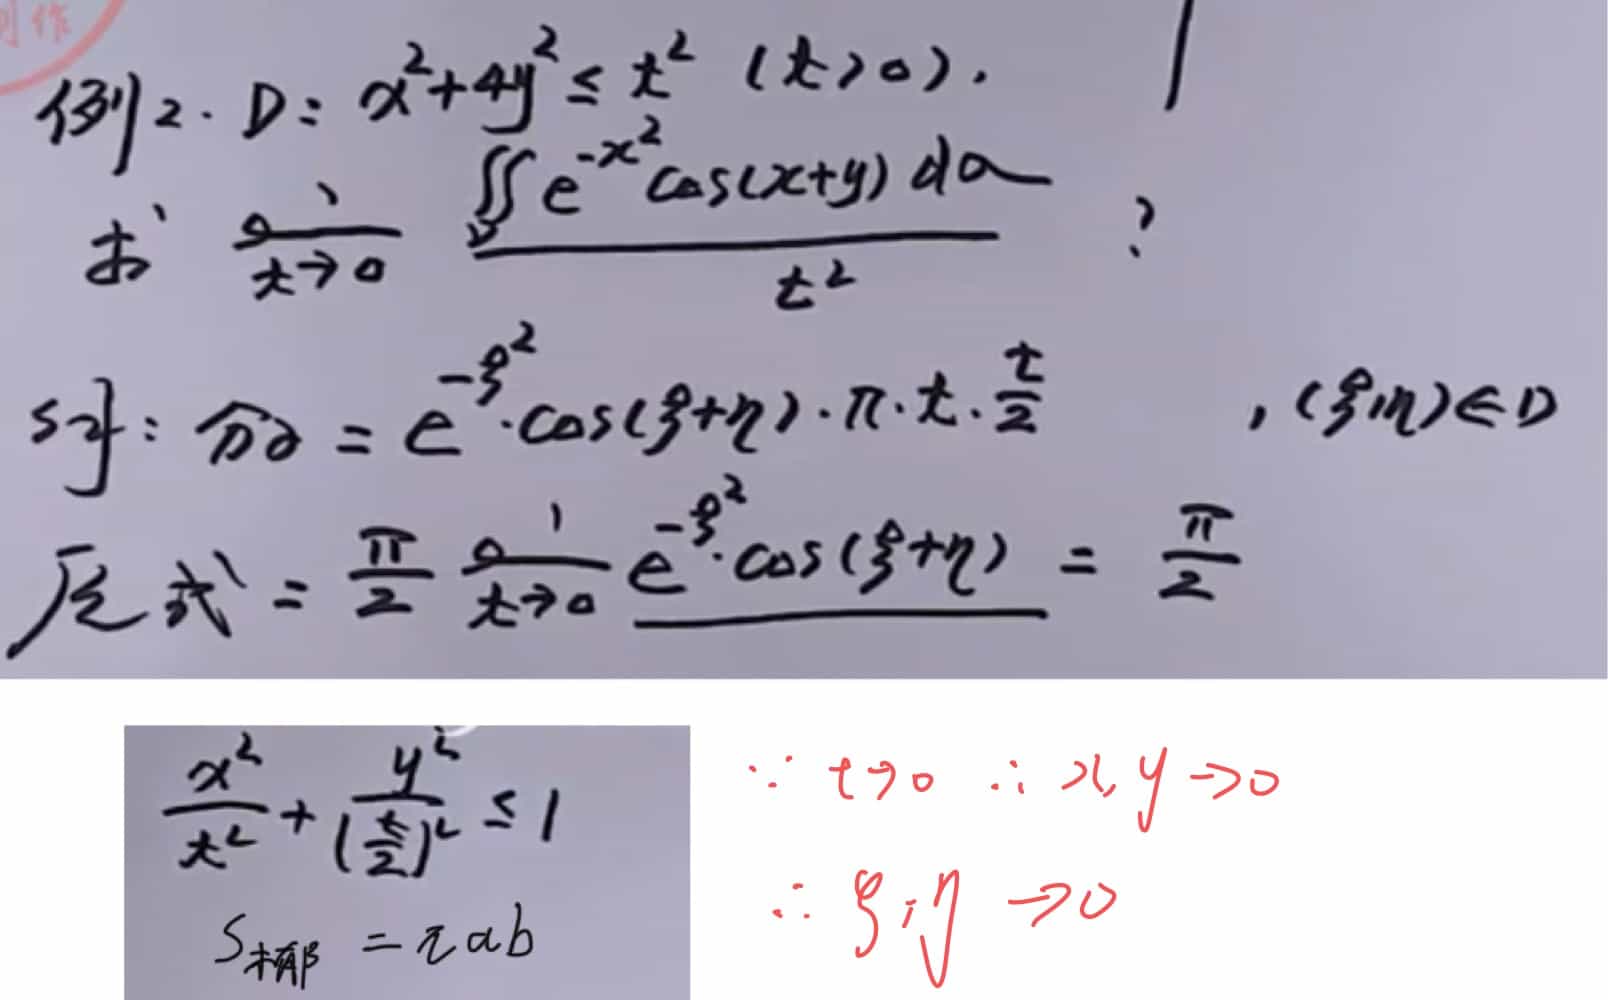 制作
例2. D: x²+4y² ≤ t² (t>0).
求 lim t→0 ∬_D e^{-x²} cos(x+y) dσ / t² ?
解: 分子 = e^{-ξ²}·cos(ξ+η)·π·t·t/2 , (ξ,η)∈D
原式 = π/2 lim t→0 e^{-ξ²}·cos(ξ+η) = π/2
x²/t² + y²/(t/2)² ≤ 1
S椭 = πab
∵ t→0 ∴ x,y→0
∴ ξ,η →0